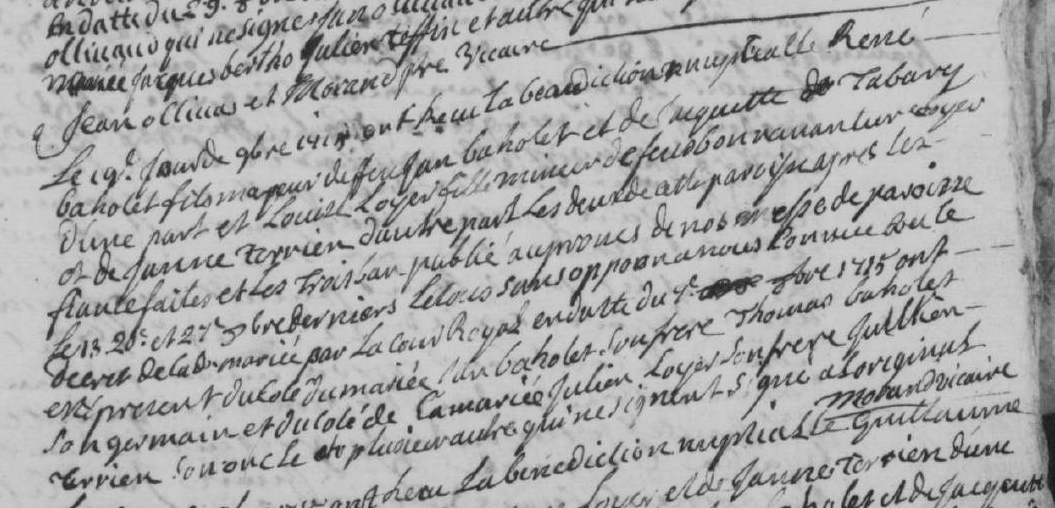 en datte du 29. 8
ollivaud qui ne signe
mariée Jacques bertho Julien teffin et autre qui
Jean ollivaud et Morand pre Vicaire
Le 19e. Jour de 9bre 1715 ont Receu La benediction nuptialle René
baholet fils majeur de feu Jan baholet et de Jaquette Tabary
d'une part et Louise Loyer fille mineur de feu bonnavanture Loyer
et de Janne Terrien d'autre part Les deux de cette paroisse apres Les
fiance faites et Les Trois ban publié au prones de nos messe de paroisse
Le 13 20e. et 27e. 8bre derniers Le tous sans opposon a nous connue vu Le
decret de la d mariée par La cour Royal en datte du 7e 9bre 1715 ont
esté present du coté du mariée Jan baholet son frere Thomas baholet
son germain et du coté de La mariée Julien Loyer son frere Jullien
terrien son oncle plusieur autre qui ne signent Signé a Loriginal
Morand Vicaire
ont Receu La benediction nuptialle Guillaume
Loyer et de Janne Terrien d'une
baholet et de Jacquette